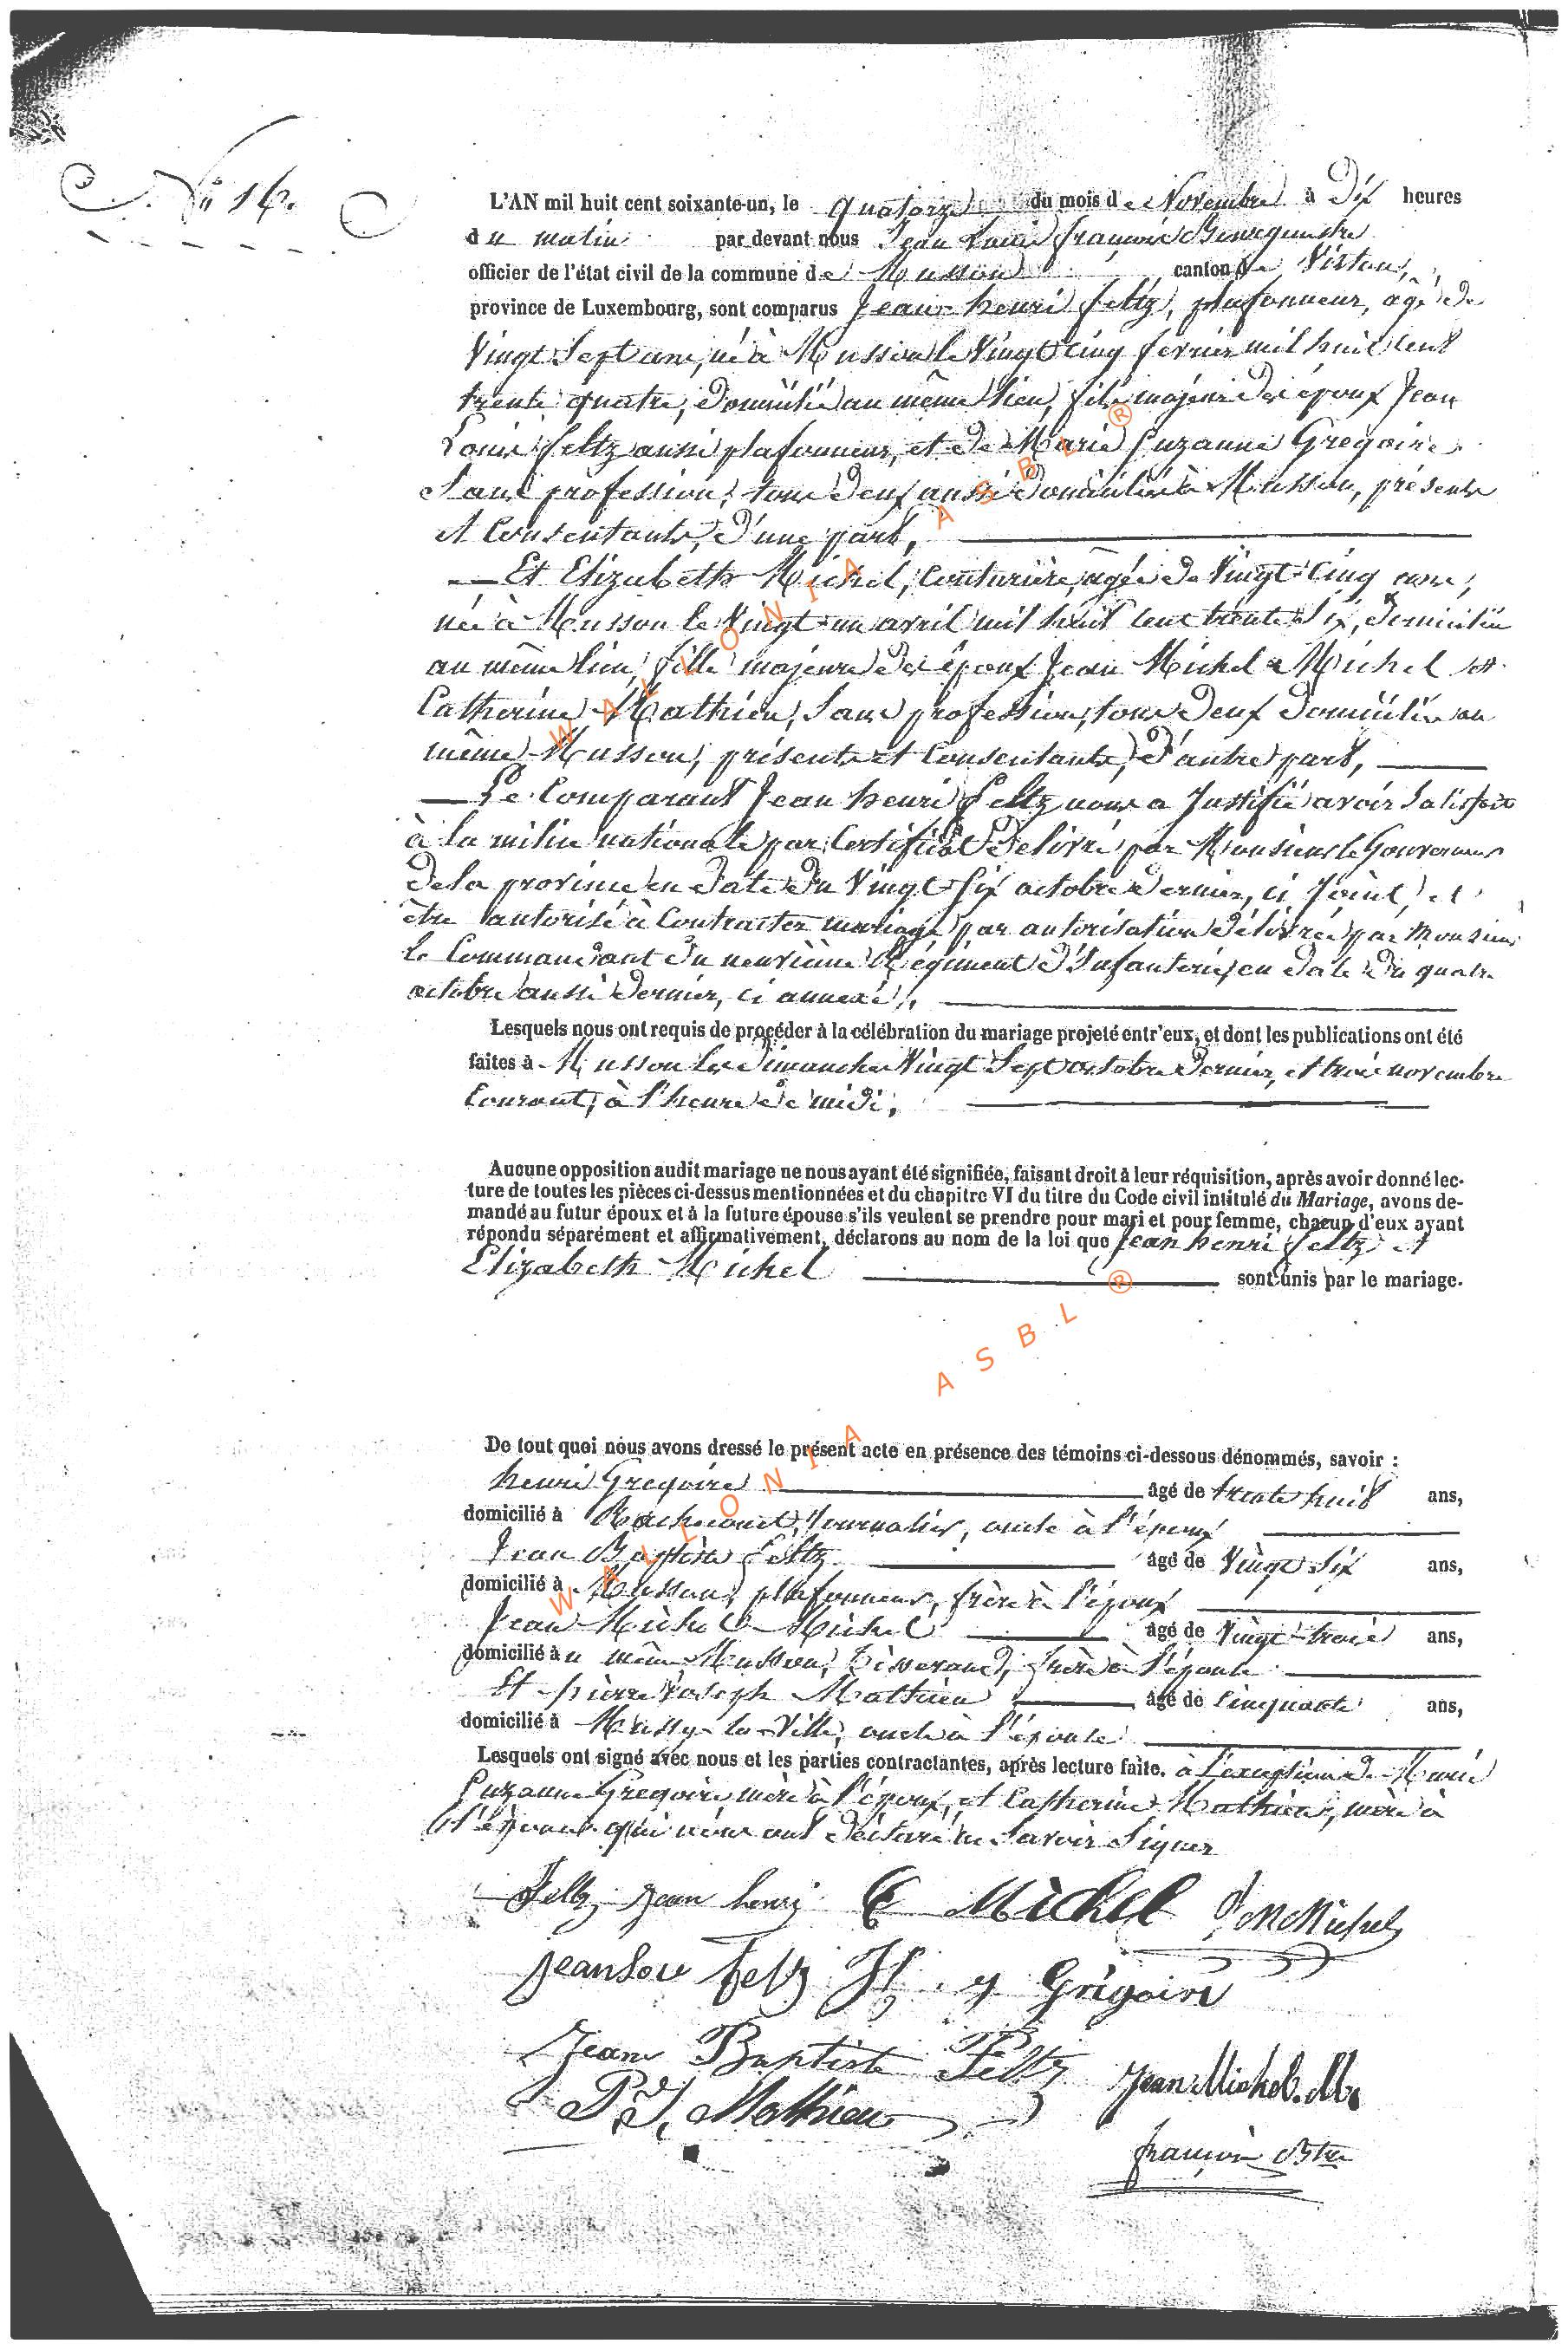 N° 16.
L'AN mil huit cent soixante-un, le quatorze du mois de Novembre à Dix heures
du matin par devant nous Jean Louis françois Bourguemestre
officier de l'état civil de la commune de Musson canton de Virton,
province de Luxembourg, sont comparus Jean henri feltz, plafonneur, âgé de
Vingt Sept ans, né à Musson le Vingt cinq fevrier mil huit cent
trente quatre, domicilié au même lieu, fils majeur des époux Jean
Louis feltz aussi plafonneur, et de Marie Suzanne Gregoire
Sans profession, tous deux aussi domiciliés à Musson, présents
et Consentants, d'une part,
Et Elizabeth Michel, Couturière, agée de Vingt-Cinq ans,
née à Musson le Vingt-un avril mil huit cent trente Six, domiciliée
au même lieu, fille majeure des époux Jean Michel Michel et
Catherine Mathieu, Sans profession, tous deux domiciliés au
même Musson, présents et Consentants, d'autre part,
Le Comparant Jean henri feltz nous a Justifié avoir Satisfait
à la milice nationale par Certificat Délivré par Monsieur le Gouverneur
de la province en date du Vingt Six octobre dernier, ci Joint, et
être autorisé à Contracter mariage par autorisation délivrée par Monsieur
le Commandant du neuvième Régiment d'Infanterie, en date du quatre
octobre aussi dernier, ci annexé,
Lesquels nous ont requis de procéder à la célébration du mariage projeté entr'eux, et dont les publications ont été
faites à Musson les Dimanches Vingt Sept octobre dernier, et trois novembre
Courant, à l'heure de midi,
Aucune opposition audit mariage ne nous ayant été signifiée, faisant droit à leur réquisition, après avoir donné lec-
ture de toutes les pièces ci-dessus mentionnées et du chapitre VI du titre du Code civil intitulé du Mariage, avons de-
mandé au futur époux et à la future épouse s'ils veulent se prendre pour mari et pour femme, chacun d'eux ayant
répondu séparément et affirmativement, déclarons au nom de la loi que Jean henri feltz et
Elizabeth Michel sont unis par le mariage.
De tout quoi nous avons dressé le présent acte en présence des témoins ci-dessous dénommés, savoir :
henri Gregoire âgé de trente huit ans,
domicilié à Rachecourt, Journalier, oncle à l'époux
Jean Baptiste feltz âgé de Vingt Six ans,
domicilié à Musson, plafonneur, frère à l'époux
Jean Michel Michel âgé de Vingt-trois ans,
domicilié au même Musson, Tisserand, frère à l'épouse
Et pierre Joseph Mathieu âgé de Cinquante ans,
domicilié à Mussy-la-Ville, oncle à l'épouse
Lesquels ont signé avec nous et les parties contractantes, après lecture faite. à l'exception de Marie
Suzanne Gregoire, mère à l'époux, et Catherine Mathieu, mère à
l'épouse qui nous ont déclaré ne Savoir Signer
Feltz jean henry E Michel J M Michel
jean Lou feltz H. y Grégoire
Jean Baptiste Feltz Jean Michel. M.
P. J. Mathieu
françois Btre
WALLONIA ASBL ®
WALLONIA ASBL ®